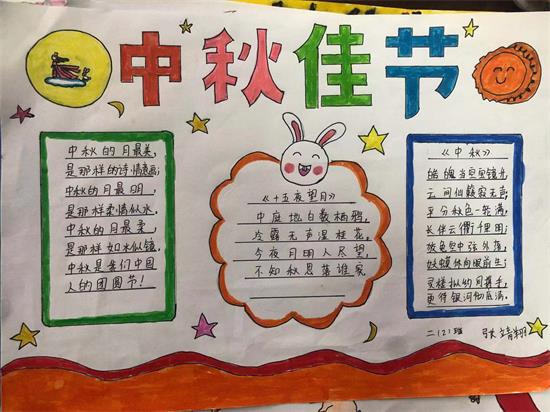 中秋佳节
中秋的月最美,
是那样的诗情画意;
中秋的月最明,
是那样柔情似水,
中秋的月最柔,
是那样如水似镜,
中秋是我们中国
人的团圆节!
《十五夜望月》
中庭地白数栖鸦,
冷露无声湿桂花,
今夜月明人尽望,
不知秋思落谁家
《中秋》
皓魄当空宝镜升
云间仙籁寂无声;
平分秋色一轮满,
长伴云衢千里明;
狡兔空中弦外落,
妖蟆休向眼前生;
灵槎拟约同携手,
更待银河彻底清。
二(2)班